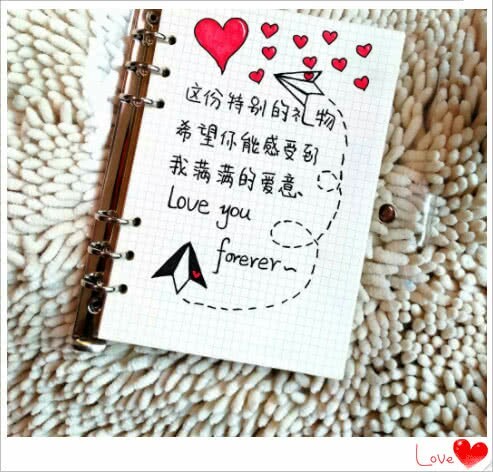 这份特别的礼物
希望你能感受到
我满满的爱意、
Love you
forever~
Love